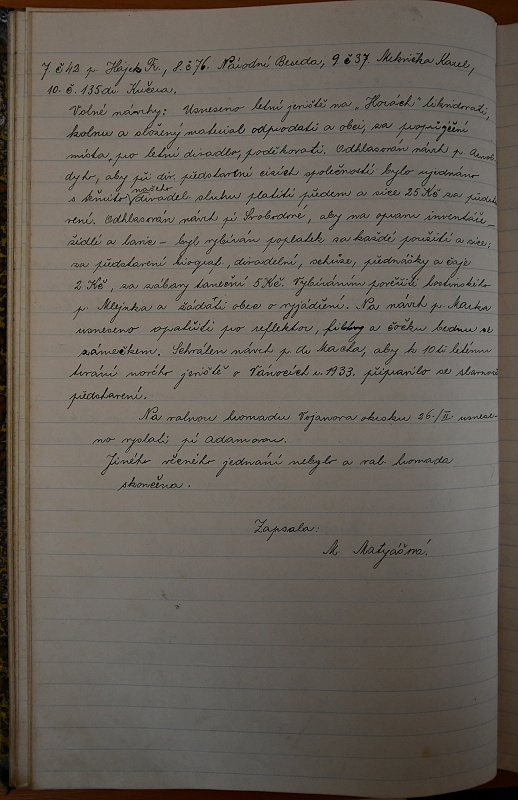 7. č 42 p. Hájek Fr., 8. č 76. Národní Beseda, 9. č 37. Mekrička Karel,
10. č. 135 du. Kučera.
Volné návrhy: Usneseno letní jeviště na "Horách" likvidovati,
kolnu a složený material odprodati a obci, za propůjčení
místa, pro letní divadlo, poděkovati. Odhlasován návrh p.
aby při div. představení cizích společností bylo ujednáno
s těmito našeho divadel. sluhu platiti předem a sice 25 Kč za předsta
vení. Odhlasován návrh pí Svobodové, aby na opravu inventáře –
židlí a lavic – byl vybírán poplatek za každé použití a sice:
za představení biograf. divadelní, schůze, přednášky a čaje
2 Kč, za zábavy taneční 5 Kč. Vybíráním pověřiti hostinského
p. Mlejnka a žádati obec o vyjádření. Na návrh p. Macka
usneseno opatřiti pro reflektor, a čočku bednu se
zámečkem. Schválen návrh p. du Macha, aby k 10ti letému
trvání nového jeviště o Vánocích r. 1933. připravilo se slavnos
představení.
Na valnou hromadu Vojanova okrsku 26./II. usnese-
no vyslati pí Adamovou.
Jiného věcného jednání nebylo a val. hromada
skončena.
Zapsala:
M. Matyášová.